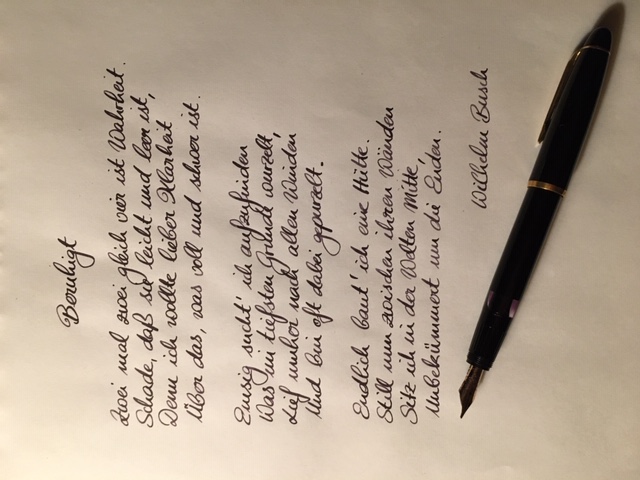 Beruhigt
Zwei mal zwei gleich vier ist Wahrheit.
Schade, daß sie leicht und leer ist,
Denn ich wollte lieber Klarheit
Über das, was voll und schwer ist.
Emsig sucht' ich aufzufinden
Was im tiefsten Grunde wurzelt,
Lief umher nach allen Winden
Und bin oft dabei gepurzelt.
Endlich baut' ich eine Hütte.
Still nun zwischen ihren Wänden
Sitz ich in der Welten Mitte,
Unbekümmert um die Enden.
Wilhelm Busch